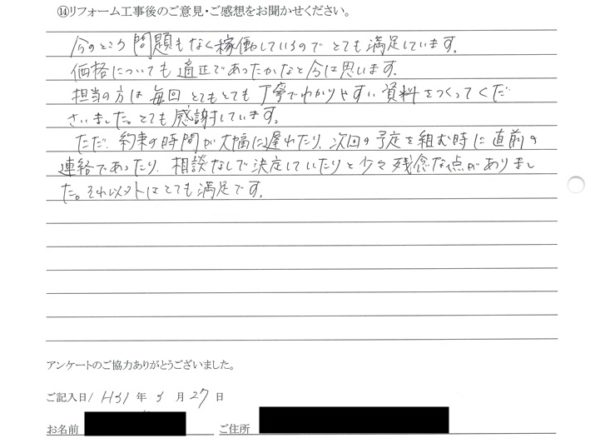 ⑭リフォーム工事後のご意見・ご感想をお聞かせください。
今のところ問題もなく稼働しているのでとても満足しています。
価格についても適正であったかなと今は思います。
担当の方は毎回とてもとても丁寧でわかりやすい資料をつくってくだ
さいました。とても感謝しています。
ただ、約束の時間が大幅に遅れたり、次回の予定を組む時に直前の
連絡であったり、相談なしで決定していたりと少々残念な点がありまし
た。それ以外はとても満足です。
アンケートのご協力ありがとうございました。
ご記入日/ H31 年 3 月 27 日
お名前
ご住所